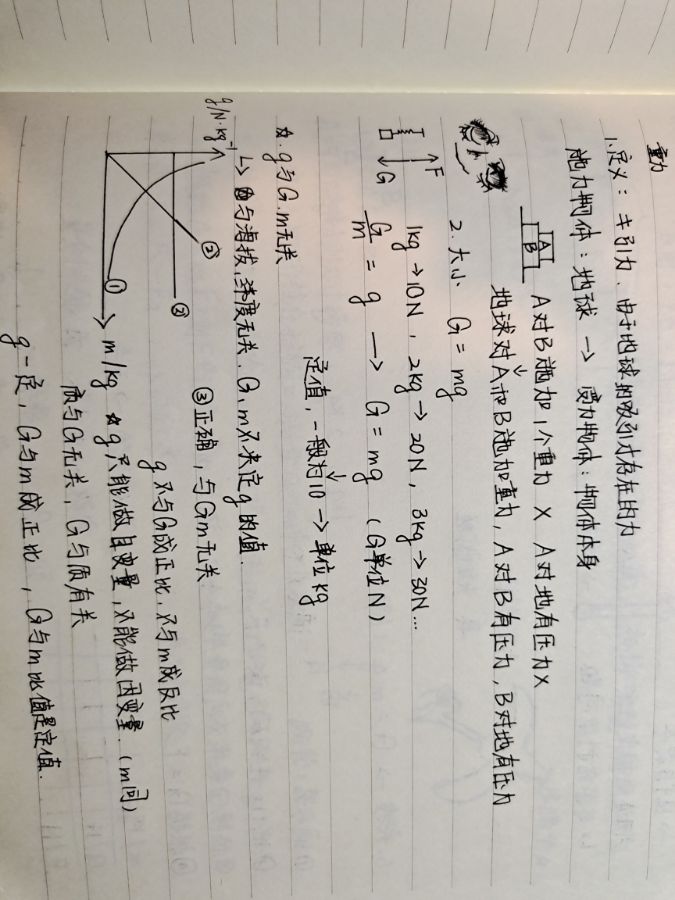 重力
1.定义：非引力，由于地球的吸引才存在的力
施力物体：地球 → 受力物体：物体本身
A
B
A对B施加1个重力 X A对地有压力X
地球对A和B施加重力，A对B有压力，B对地有压力
2.大小 G=mg
F
G
1kg→10N，2kg→20N，3kg→30N...
G/m = g → G=mg (G单位N)
定值，一般为10 → 单位kg
☆.g与G.m无关
↳ 与海拔，纬度无关，G,m不决定g的值.
g/N·kg⁻¹
③
②
①
m/kg
③正确，与Gm无关
g不与G成正比，不与m成反比
☆g只能做自变量，不能做因变量.(m同)
质与G无关，G与质有关
g一定，G与m成正比，G与m比值是定值.